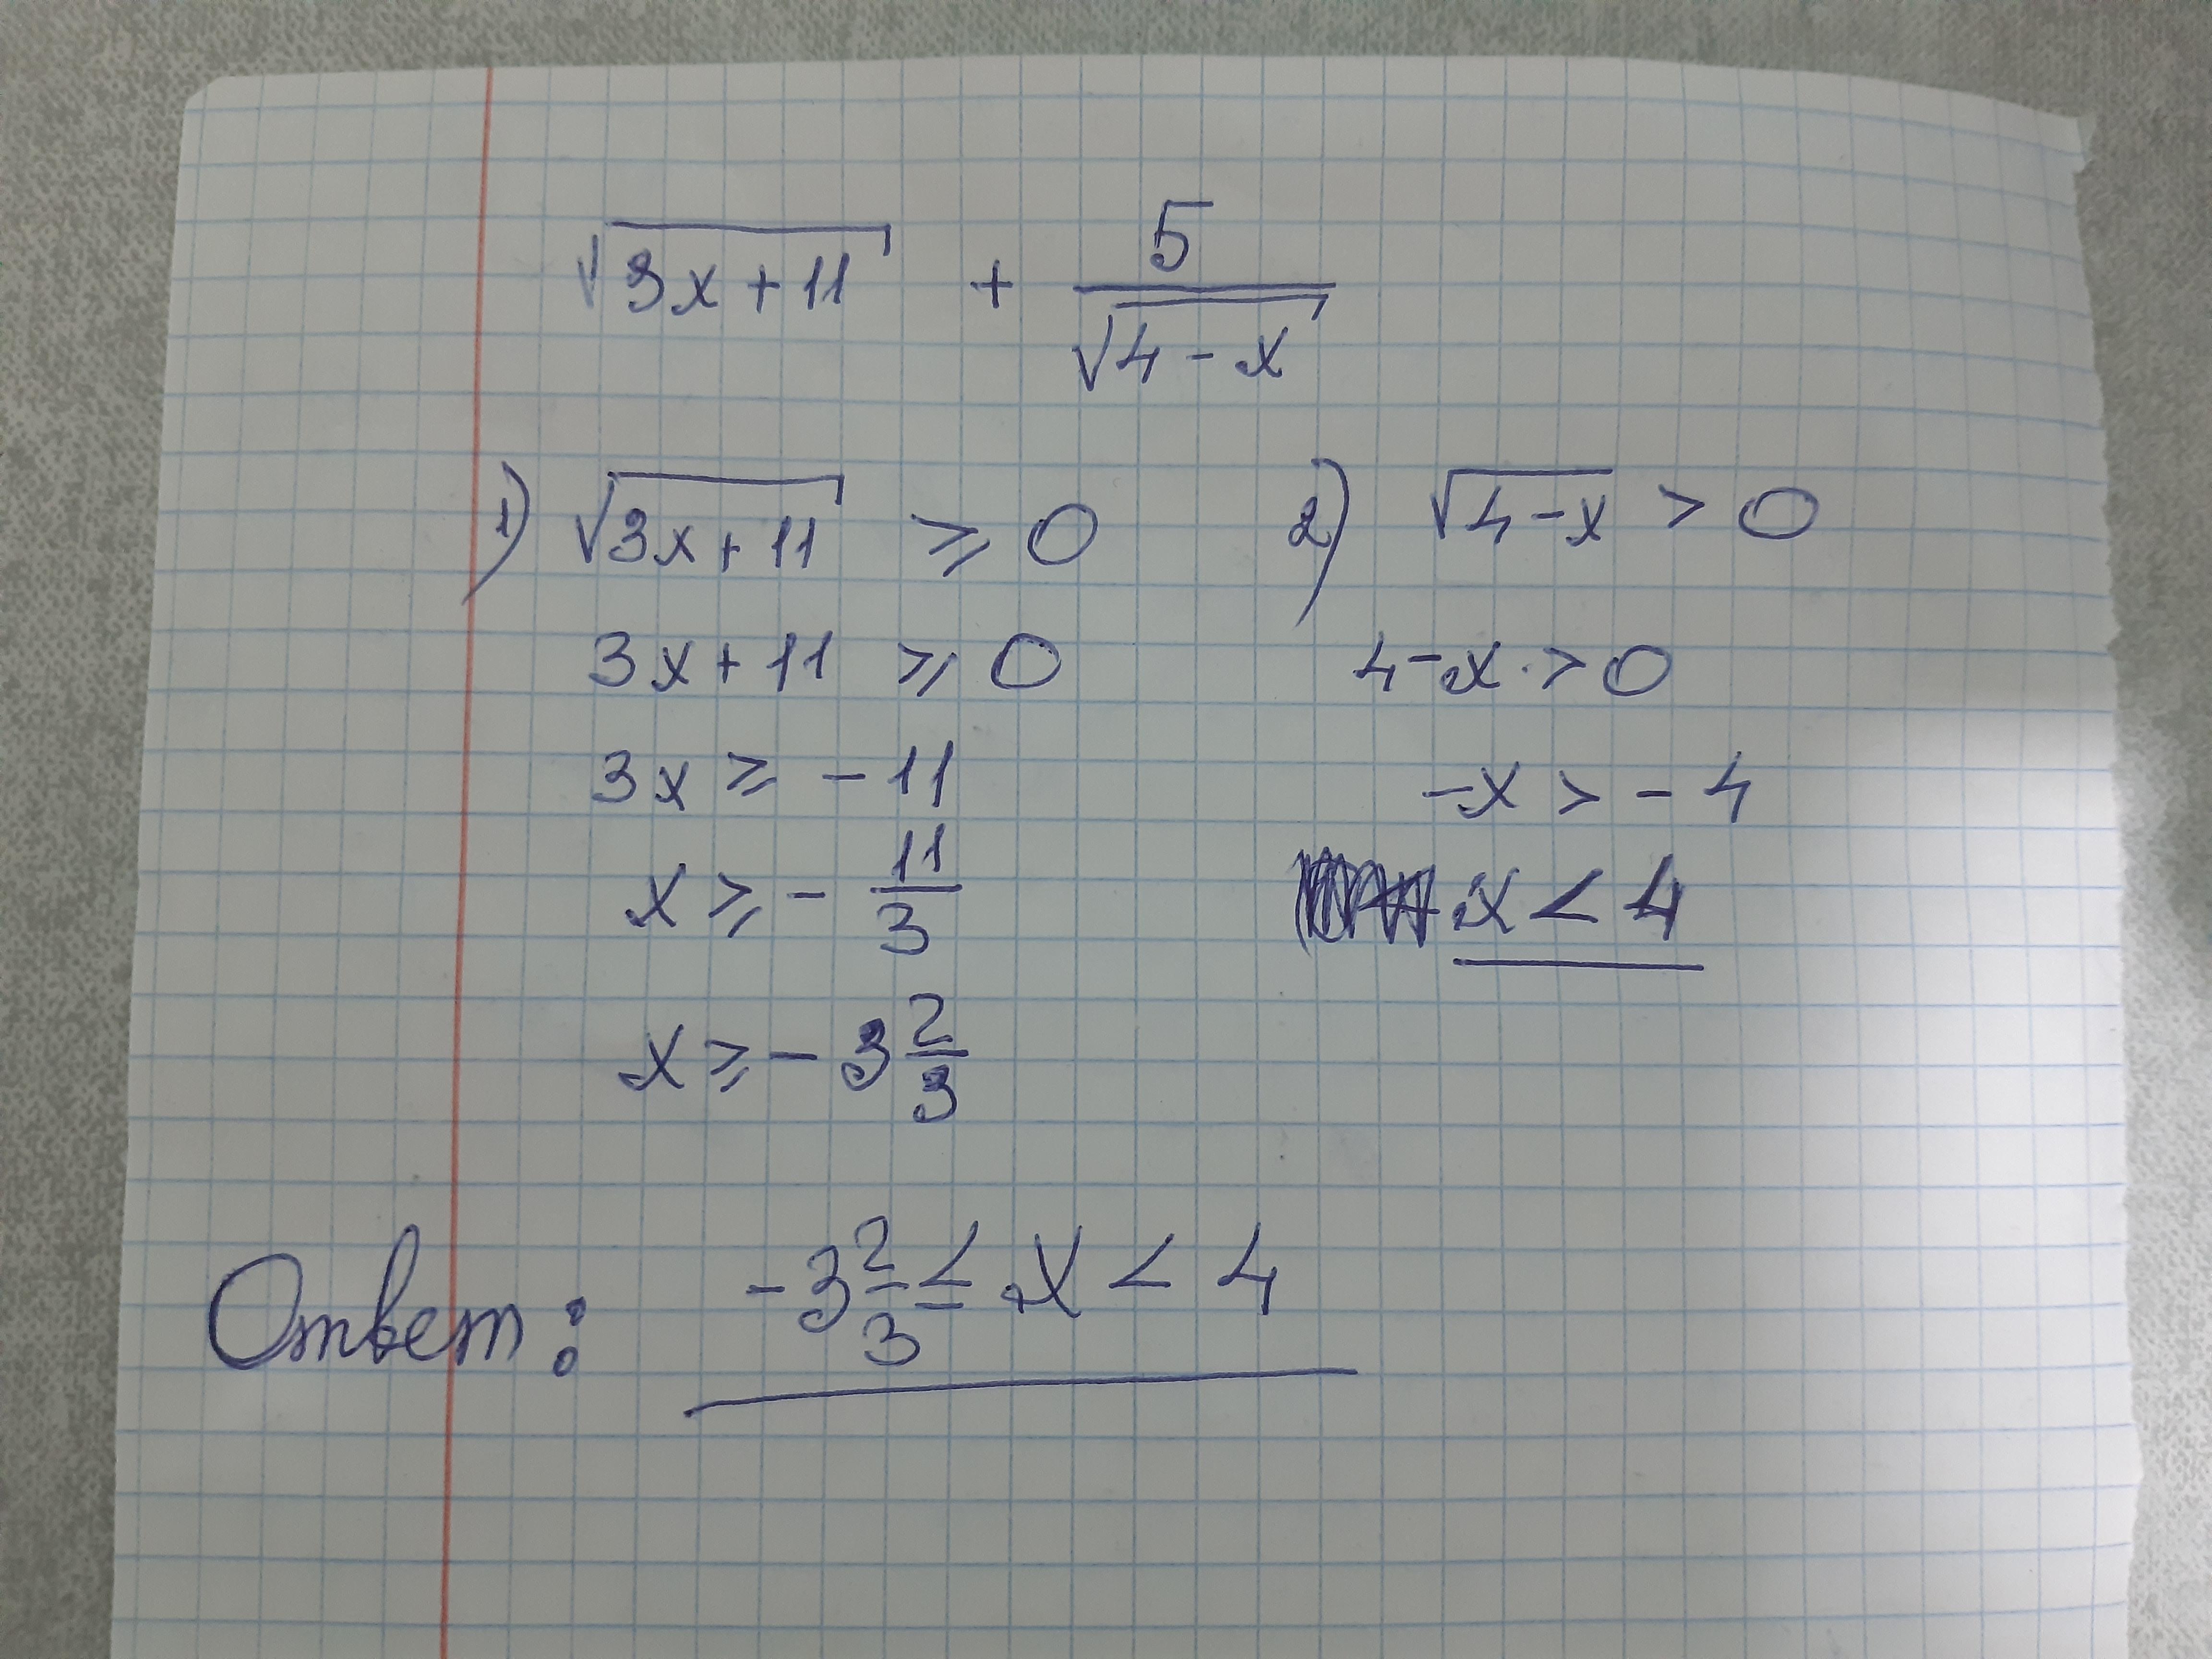 √(3x+11) + 5/√(4-x)
1) √(3x+11) ⩾ 0
3x+11 ⩾ 0
3x ⩾ -11
x ⩾ - 11/3
x ⩾ - 3 2/3
2) √(4-x) > 0
4-x > 0
-x > -4
x < 4
Ответ: -3 2/3 ≤ x < 4